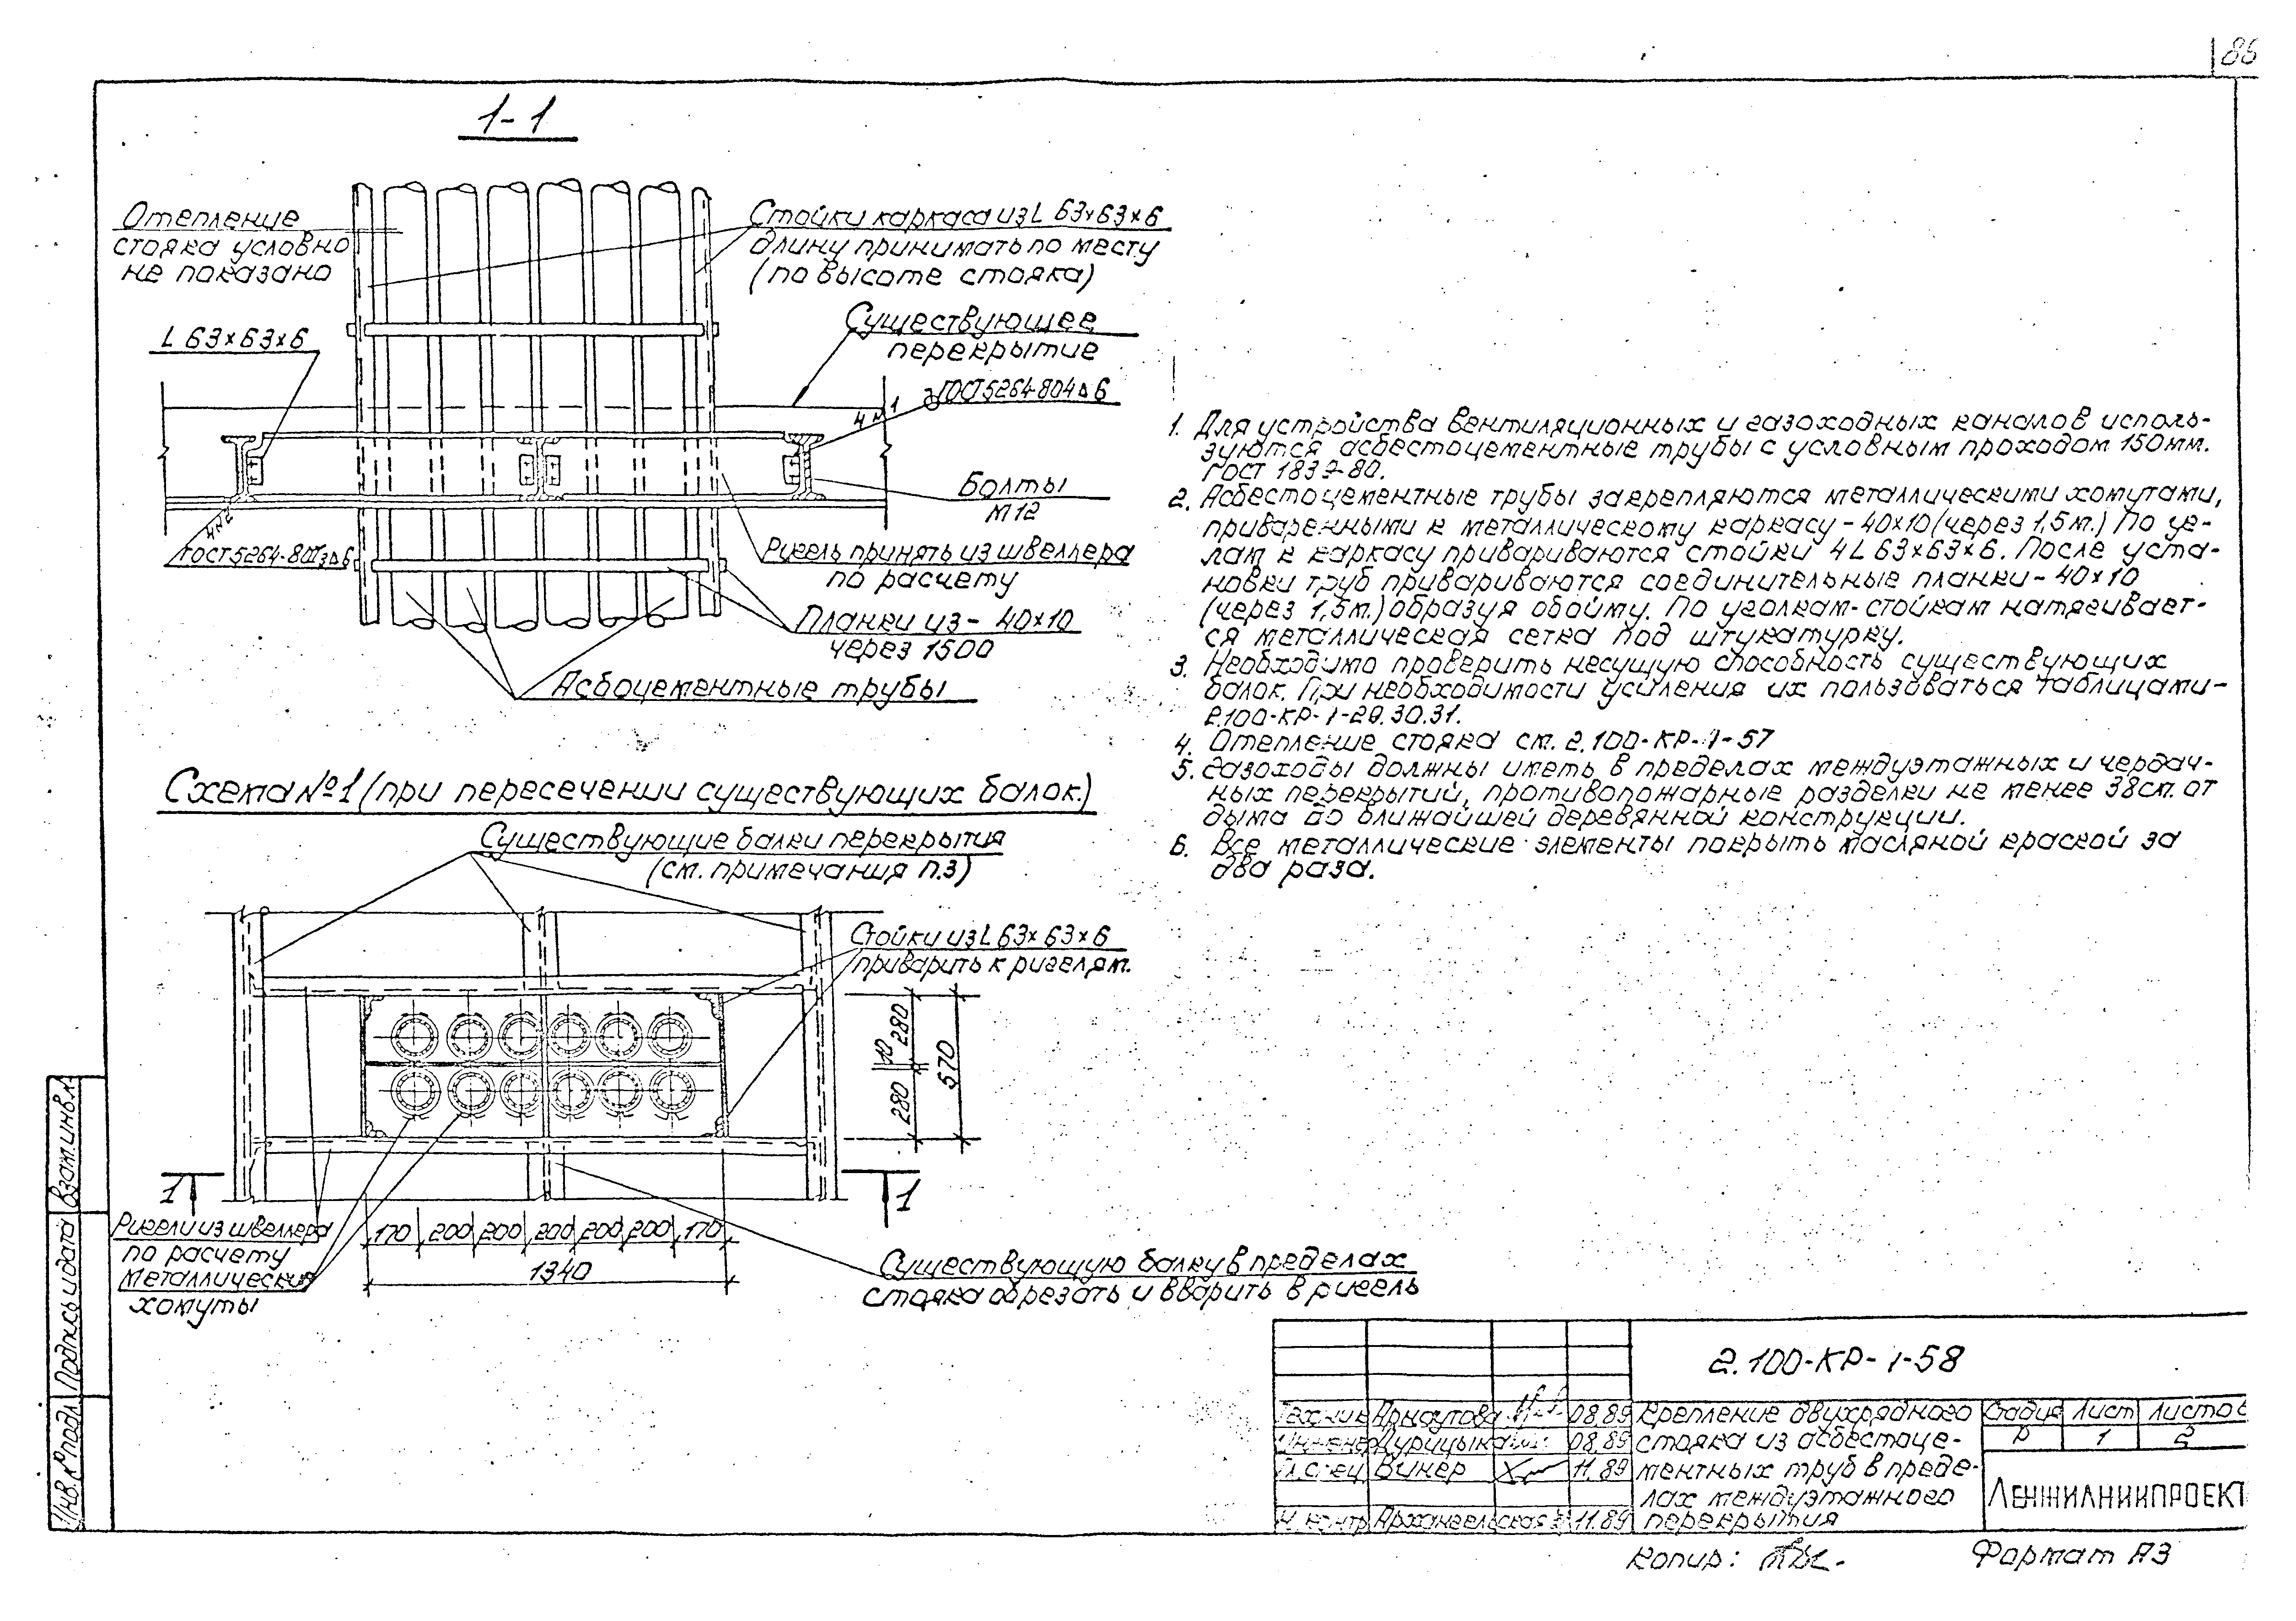 86
1-1
Отепление
стояка условно
не показано
Стойки каркаса из L 63×63×6
длину принимать по месту
(по высоте стояка)
L 63×63×6
Существующее
перекрытие
ГОСТ 5264-80
4 № 1
Болты
М12
4 № 2
ГОСТ 5264-80
Ригель принять из швеллера
по расчету
Планки из - 40×10
через 1500
Асбоцементные трубы
1. Для устройства вентиляционных и газоходных каналов исполь-
зуются асбестоцементные трубы с условным проходом 150мм.
ГОСТ 1839-80.
2. Асбестоцементные трубы закрепляются металлическими хомутами,
приваренными к металлическому каркасу - 40×10 (через 1,5 м.) По уг-
лам к каркасу привариваются стойки 4 L 63×63×6. После уста-
новки труб привариваются соединительные планки - 40×10
(через 1,5м.) образуя обойму. По уголкам-стойкам натягивает-
ся металлическая сетка под штукатурку.
3. Необходимо проверить несущую способность существующих
балок. При необходимости усиления их пользоваться таблицами-
2.100-КР-1-29.30.31.
4. Отепление стояка см. 2.100-КР-1-57
5. Газоходы должны иметь в пределах междуэтажных и чердач-
ных перекрытий, противопожарные разделки не менее 38см. от
дыма до ближайшей деревянной конструкции.
6. Все металлические элементы покрыть масляной краской за
два раза.
Схема №1 (при пересечении существующих балок.)
Существующие балки перекрытия
(см. примечания п.3)
Стойки из L 63×63×6
приварить к ригелям.
280
10
280
570
1
1
Ригели из швеллера
по расчету
Металлические
хомуты
170 200 200 200 200 200 170
1340
Существующую балку в пределах
стояка обрезать и вварить в ригель
Взам.инв.№
Подпись и дата
Инв.№подл.
2.100-КР-1-58
Техник Арнаутова 08.89
Инженер 08.89
Гл.спец Винер 11.89
Н.контр Архангельская 11.89
Крепление двухрядного
стояка из асбестоце-
ментных труб в преде-
лах междуэтажного
перекрытия
Стадия Лист Листов
Р 1 2
ЛЕНЖИЛНИИПРОЕКТ
Копир:
Формат А3